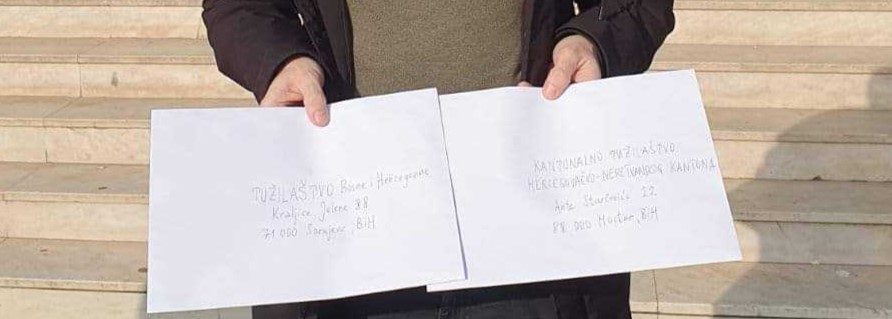 TUŽILAŠTVO Bosne i Hercegovine
Kraljice Jelene 88
71 000 Sarajevo, BiH
KANTONALNO TUŽILAŠTVO
HERCEGOVAČKO-NERETVANSKOG KANTONA
Ante Starčevića 22
88 000 Mostar, BiH